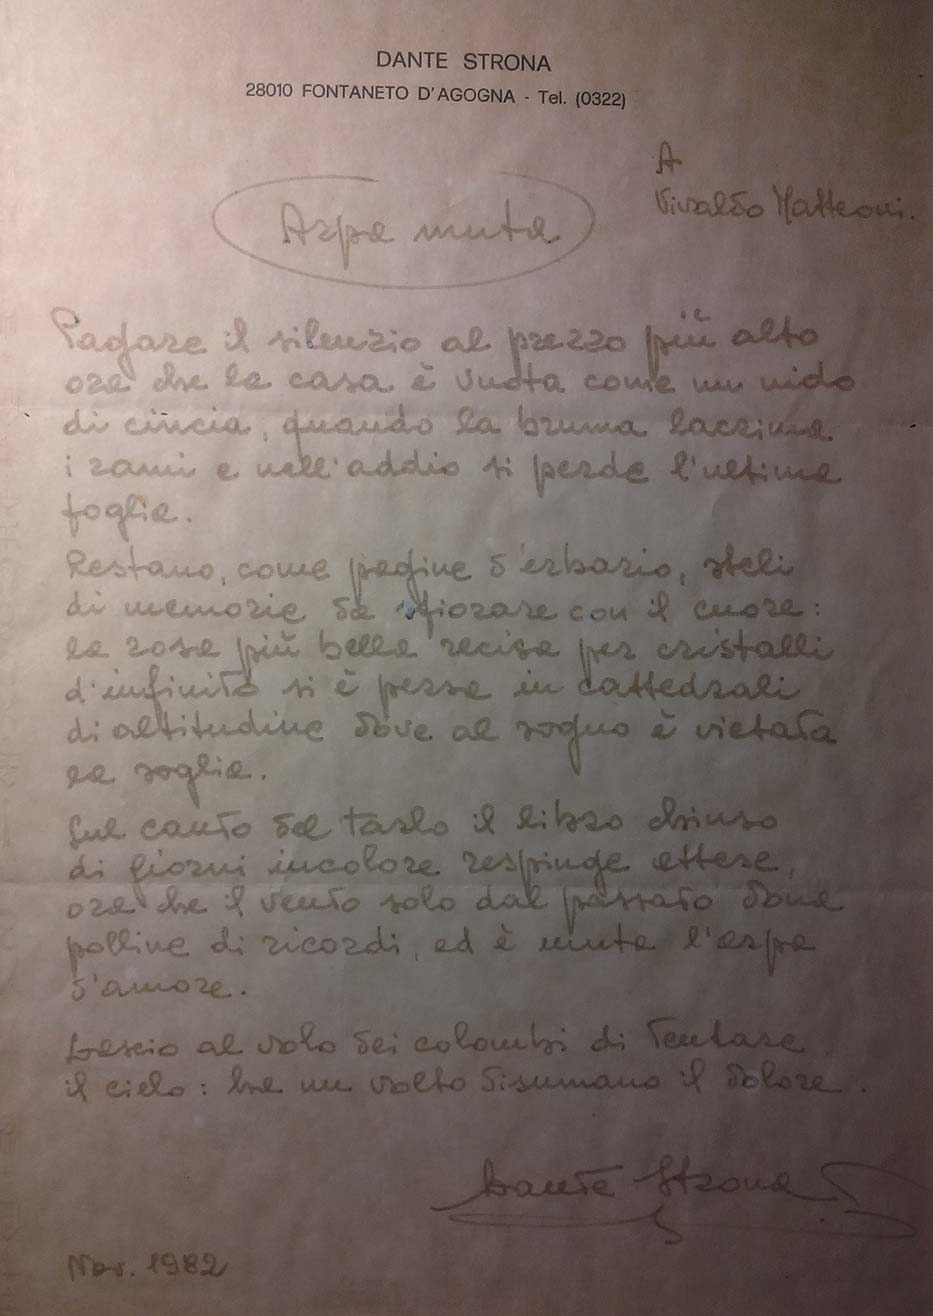 DANTE STRONA
28010 FONTANETO D'AGOGNA - Tel. (0322)
A
Vivaldo Matteoni.
Arpa muta
Pagare il silenzio al prezzo più alto
ora che la casa è vuota come un nido
di cincia, quando la bruma lacrima
i rami e nell'addio si perde l'ultima
foglia.
Restano, come pagine d'erbario, steli
di memorie da sfiorare con il cuore:
la rosa più bella recisa per cristalli
d'infinito si è persa in cattedrali
di altitudine dove al sogno è vietata
la soglia.
Sul canto del tarlo il libro chiuso
di giorni incolore respinge attese,
ora che il vento solo dal passato dona
polline di ricordi, ed è muta l'arpa
d'amore.
Lascio al volo dei colombi di tentare
il cielo: ha un volto disumano il dolore.
Dante Strona
Nov. 1982